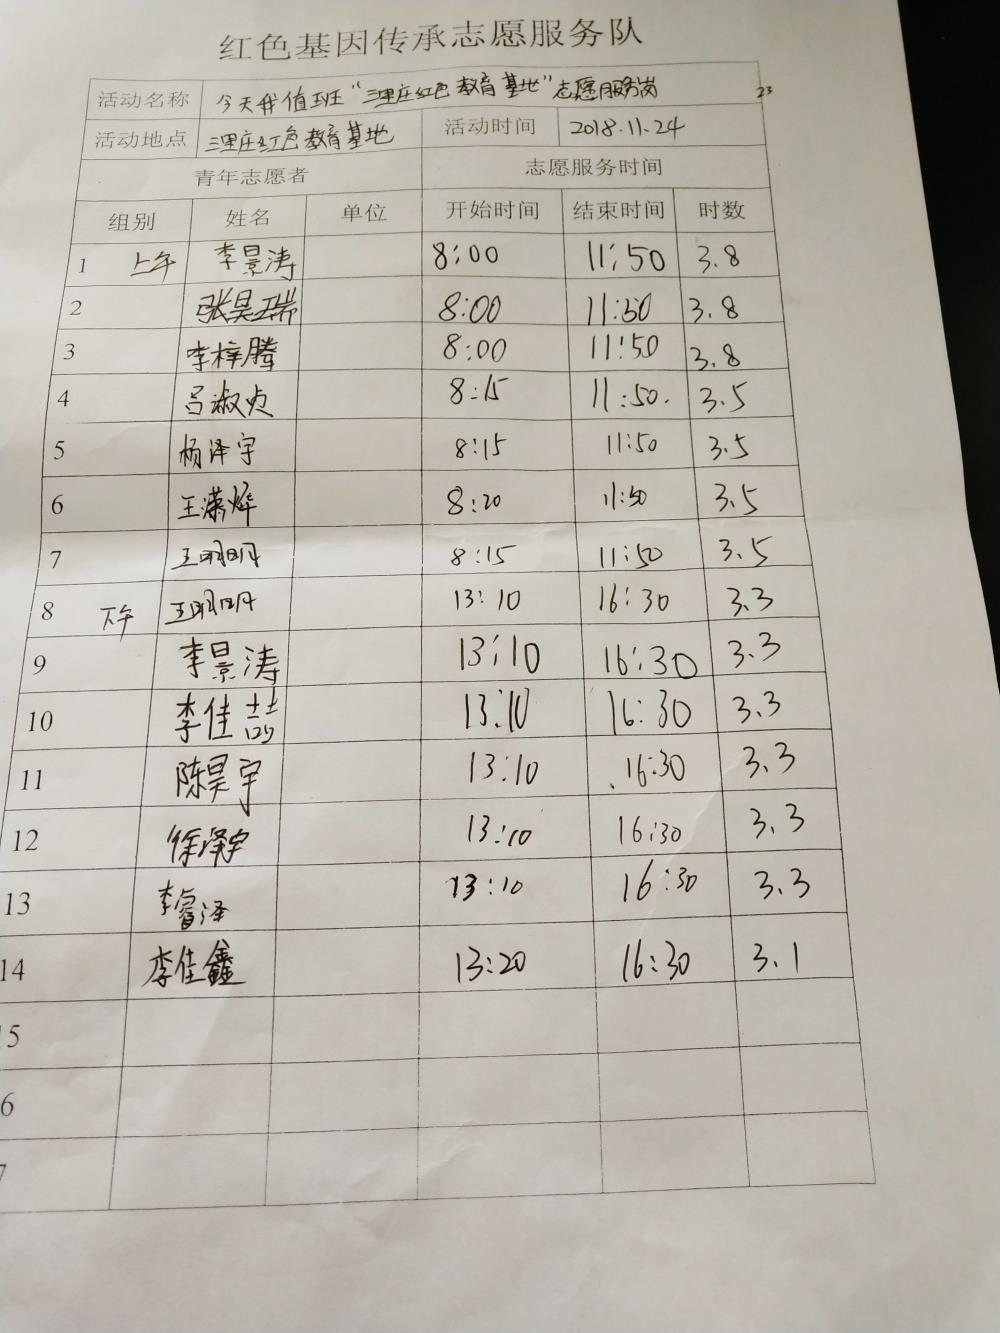 红色基因传承志愿服务队
活动名称 今天我值班“三里庄红色教育基地”志愿服务岗 23
活动地点 三里庄红色教育基地 活动时间 2018.11.24
青年志愿者 志愿服务时间
组别 姓名 单位 开始时间 结束时间 时数
1 上午 李景涛 8:00 11:50 3.8
2 张昊瑞 8:00 11:50 3.8
3 李梓腾 8:00 11:50 3.8
4 吕淑贞 8:15 11:50. 3.5
5 杨泽宇 8:15 11:50 3.5
6 王潇烨 8:20 11:50 3.5
7 王明明 8:15 11:50 3.5
8 下午 王明明 13:10 16:30 3.3
9 李景涛 13:10 16:30 3.3
10 李佳喆 13:10 16:30 3.3
11 陈昊宇 13:10 16:30 3.3
12 徐泽宇 13:10 16:30 3.3
13 李睿泽 13:10 16:30 3.3
14 李佳鑫 13:20 16:30 3.1
15
6
7